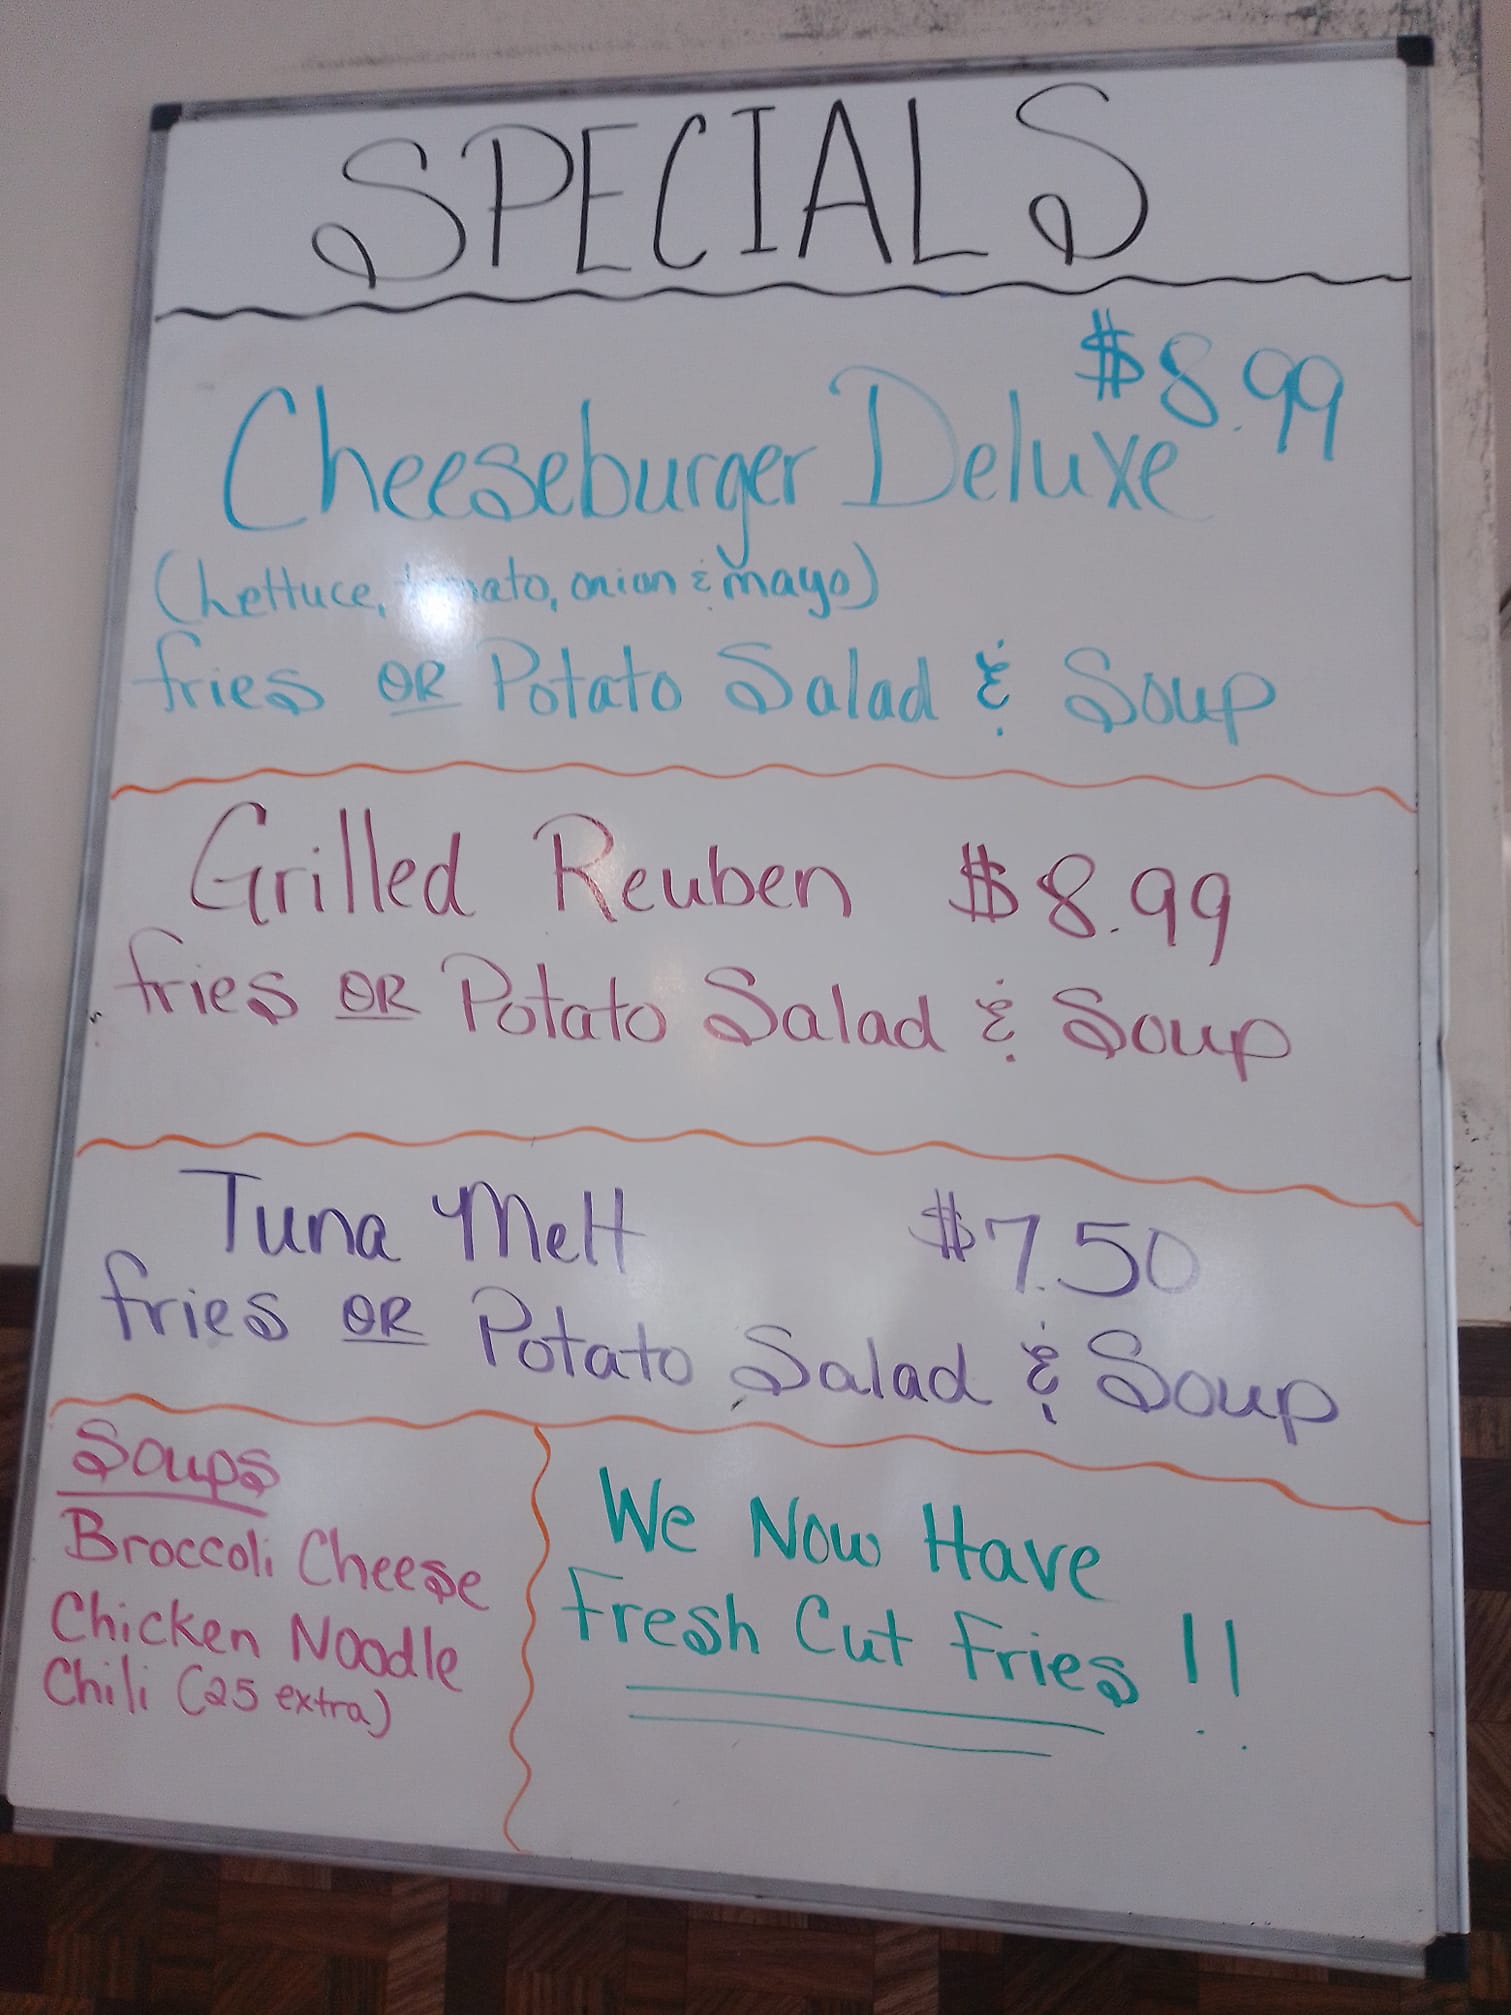 SPECIALS
$8.99
Cheeseburger Deluxe
(Lettuce, tomato, onion & mayo)
fries OR Potato Salad & Soup
Grilled Reuben $8.99
fries OR Potato Salad & Soup
Tuna Melt $7.50
fries OR Potato Salad & Soup
Soups
Broccoli Cheese
Chicken Noodle
Chili (25 extra)
We Now Have
Fresh Cut Fries!!